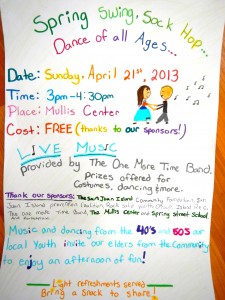 Spring Swing, Sock Hop...
Dance of all Ages...
Date: Sunday, April 21st, 2013
Time: 3pm-4:30pm
Place: Mullis Center
Cost: FREE (thanks to our sponsors!)
LIVE MUSIC
provided by The One More Time Band,
prizes offered for
costumes, dancing & more.
Thank our sponsors: The San Juan Island Community Foundation, San
Juan Island
The One more Time Band, The Mullis Center and Spring Street School
Music and dancing from the 40's and 50's our
local Youth invite our elders from the Community
to enjoy an afternoon of fun!
Light refreshments served
Bring a Snack to share!